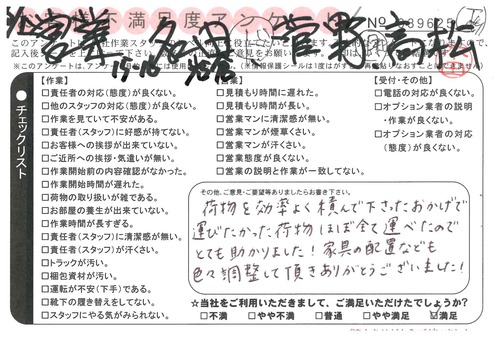 営業
菅野 高松
不満足度アンケ
No
チェックリスト
【作業】
□責任者の対応(態度)が良くない。
□他のスタッフの対応(態度)が良くない。
□作業を見ていて不安がある。
□責任者(スタッフ)に好感が持てない。
□お客様への挨拶が出来ていない。
□ご近所への挨拶・気遣いが無い。
□作業開始前の内容確認がなかった。
□作業開始時間が遅れた。
□荷物の取り扱いが雑である。
□お部屋の養生が出来ていない。
□作業時間が長すぎる。
□責任者(スタッフ)に清潔感が無い。
□責任者(スタッフ)が汗くさい。
□トラックが汚い。
□梱包資材が汚い。
□運転が不安(下手)である。
□靴下の履き替えをしてない。
□スタッフにやる気がみられない。
□見積もり時間に遅れた。
□見積もり時間が長い。
□営業マンに清潔感が無い。
□営業マンが煙草くさい。
□営業マンが汗くさい。
□営業態度が良くない。
□営業の説明と作業が一致してない。
【受付・その他】
□電話の対応が良くない。
□オプション業者の説明
・作業が良くない。
□オプション業者の対応
(態度)が良くない。
その他、ご意見・ご要望等ありましたらお書き下さい。
荷物を効率よく積んで下さったおかげで
運びたかった荷物ほぼ全て運べたので
とても助かりました!家具の配置なども
色々調整して頂きありがとうございました!
☆当社をご利用いただきまして、ご満足いただけたでしょうか?
□不満 □やや不満 □普通 □やや満足 ☑満足